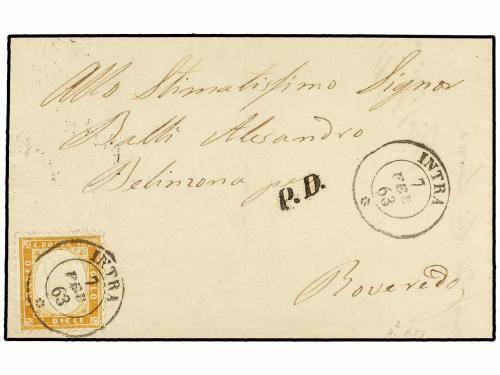 Allo Stimatissimo Signor
Balli Alesandro
Belinzona per
P.D.
INTRA
7
FEB
63
Roveredo
INTRA
7
FEB
63
C. POSTE
BOLLO
DIECI